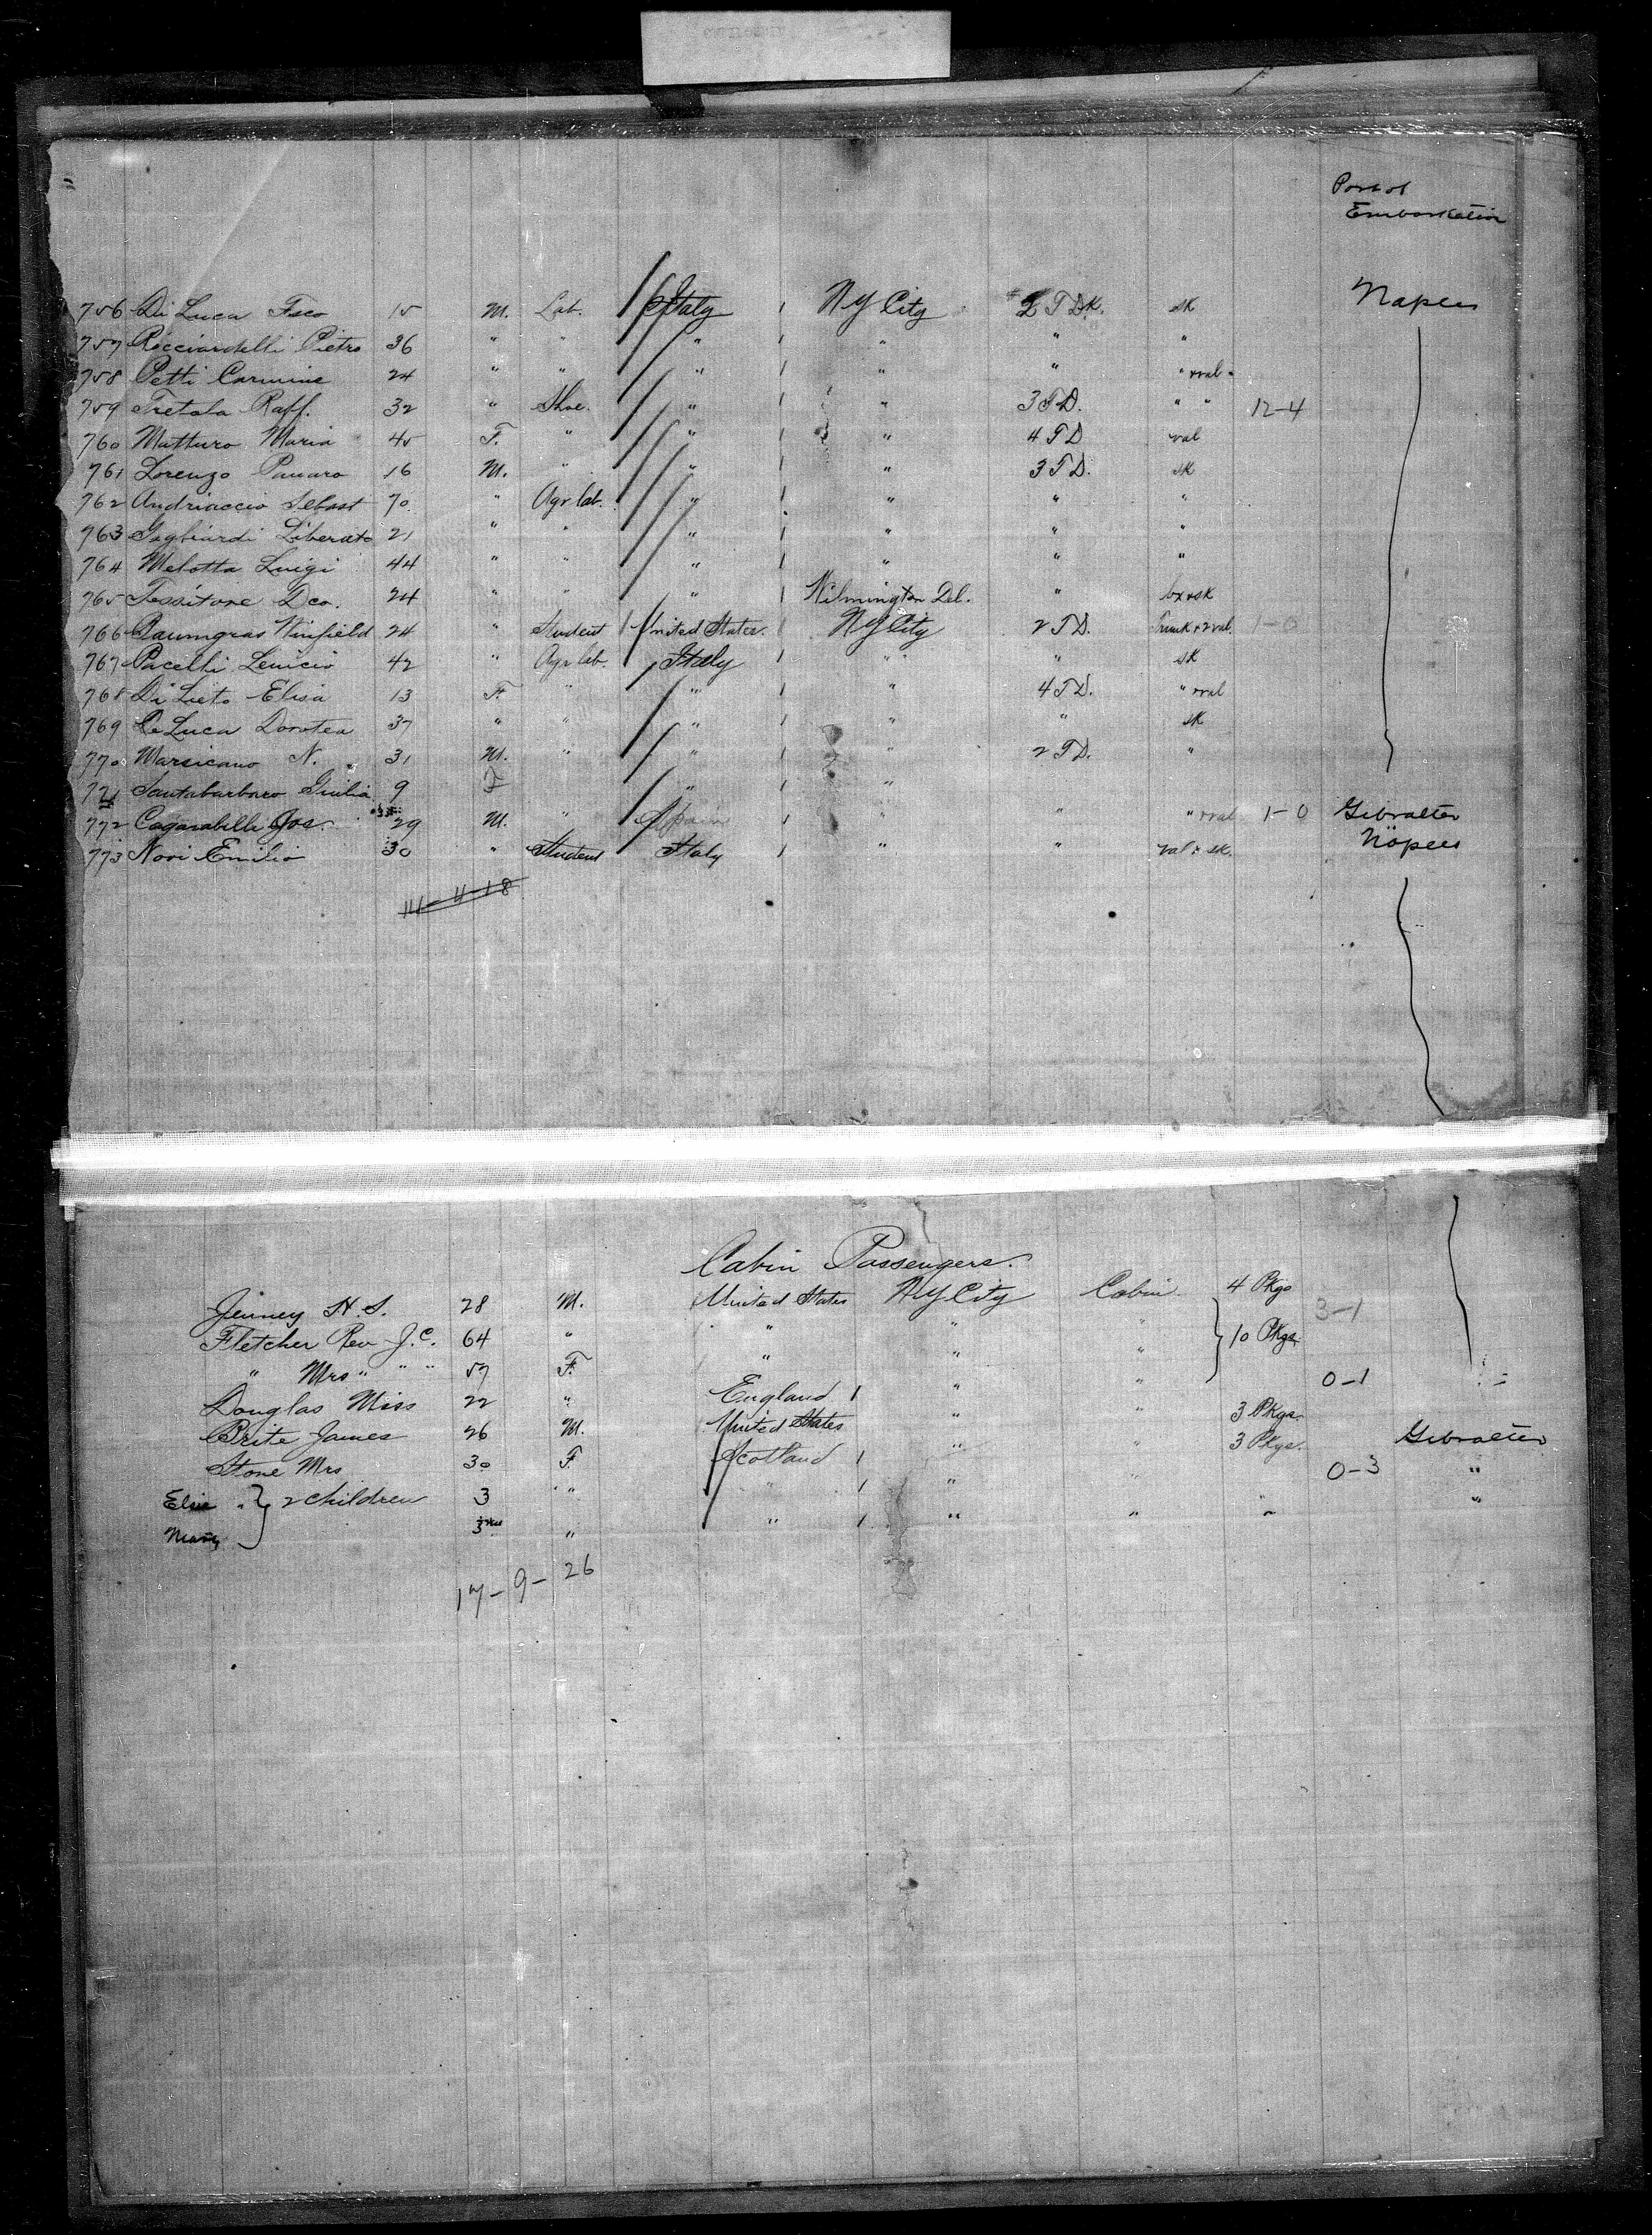 Port of
Embarkation
756 Di Luca Fsco 15 M. Lab. Italy 1 NY City 2 T DK. sk Naples
757 Ricciardelli Pietro 36 " " " 1 " " "
758 Petti Carmine 24 " " " 1 " " " & val
759 Tretola Raff. 32 " Shoe. " 1 " 3 T D. " " 12-4
760 Matturo Maria 45 F. " " 1 " 4 T D val
761 Lorenzo Panaro 16 M. " " 1 " 3 T D. sk
762 Andriaccio Sebast 70 " Agr lab. " 1 " " "
763 Gagliardi Liberato 21 " " " 1 " " "
764 Melotta Luigi 44 " " " 1 " " "
765 Tessitore Dco. 24 " " " 1 Wilmington Del. " bx & sk
766 Baumgras Winfield 24 " Student United States. NY City 2 T D. Trunk & 2 val. 1-0
767 Pacelli 42 " Agr lab. Italy 1 " " sk
768 Di Lieto Elisa 13 F. " " 1 " 4 T D. " & val
769 De Luca Dorotea 37 " " " 1 " " sk
770 Marsicano N. 31 M. " " 1 " 2 T D. "
771 Santabarbaro Giulia 9 F " 1 "
772 Jos. 29 M. " Spain 1 " " " & val 1-0 Gibralter
773 Novi Emilio 30 " Student Italy 1 " " val & sk. Naples
14-4-18
Cabin Passengers.
Jenney H. S. 28 M. United States NY City Cabin 4 Pkgs
3-1
Fletcher Rev J. C. 64 " " " " 10 Pkgs.
" Mrs " " " 57 F. " " "
Douglas Miss 22 " England 1 " " 3 Pkgs. 0-1
Brite James 26 M. United States " " 3 Pkgs. Gibralter
Stone Mrs 30 F. Scotland 1 " " 0-3 "
Elsie " } 2 children 3 " " 1 " " " "
Mary " " 1 " " "
17-9-26